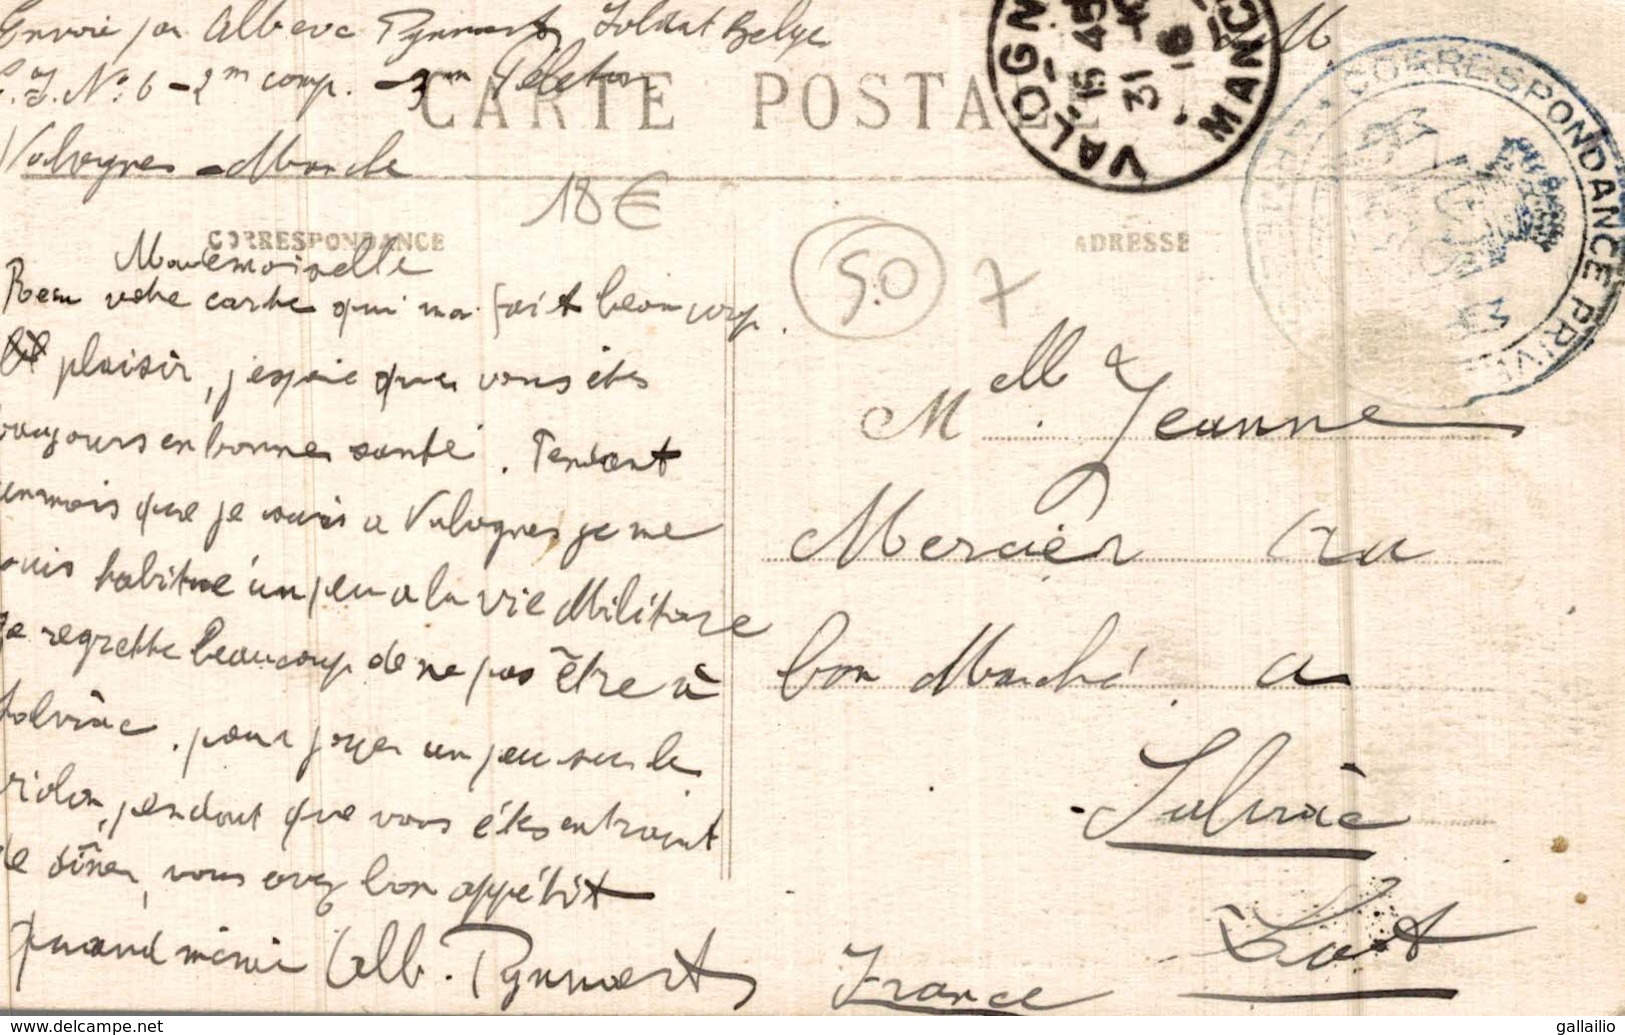 Envoie par Albert Pynnaert Soldat Belge
C.I. No: 6 - 2m comp. - 3m Peleton
CARTE POSTALE
Valognes - Manche
VALOGNES
15 45
31
16
MANCHE
CORRESPONDANCE PRIVÉE
18 €
CORRESPONDANCE
ADRESSE
50
7
Mademoiselle
Recu votre carte qui ma fait beaucoup
plaisir, j'espaie que vous êtes
toujours en bonne santé. Pendant
un mois que je suis a Valognes je me
suis habitué un peu a la vie Militare
Je regrette beaucoup de ne pas être à
Salviac. pour jouer un peu sur le
violon, pendant que vous étes entraint
de dîner, vous avez bon appétit
quand même Alb. Pynnaert
Melle Jeanne
Mercier au
bon Marché a
Salviac
Lot
France
www.delcampe.net
gallailio